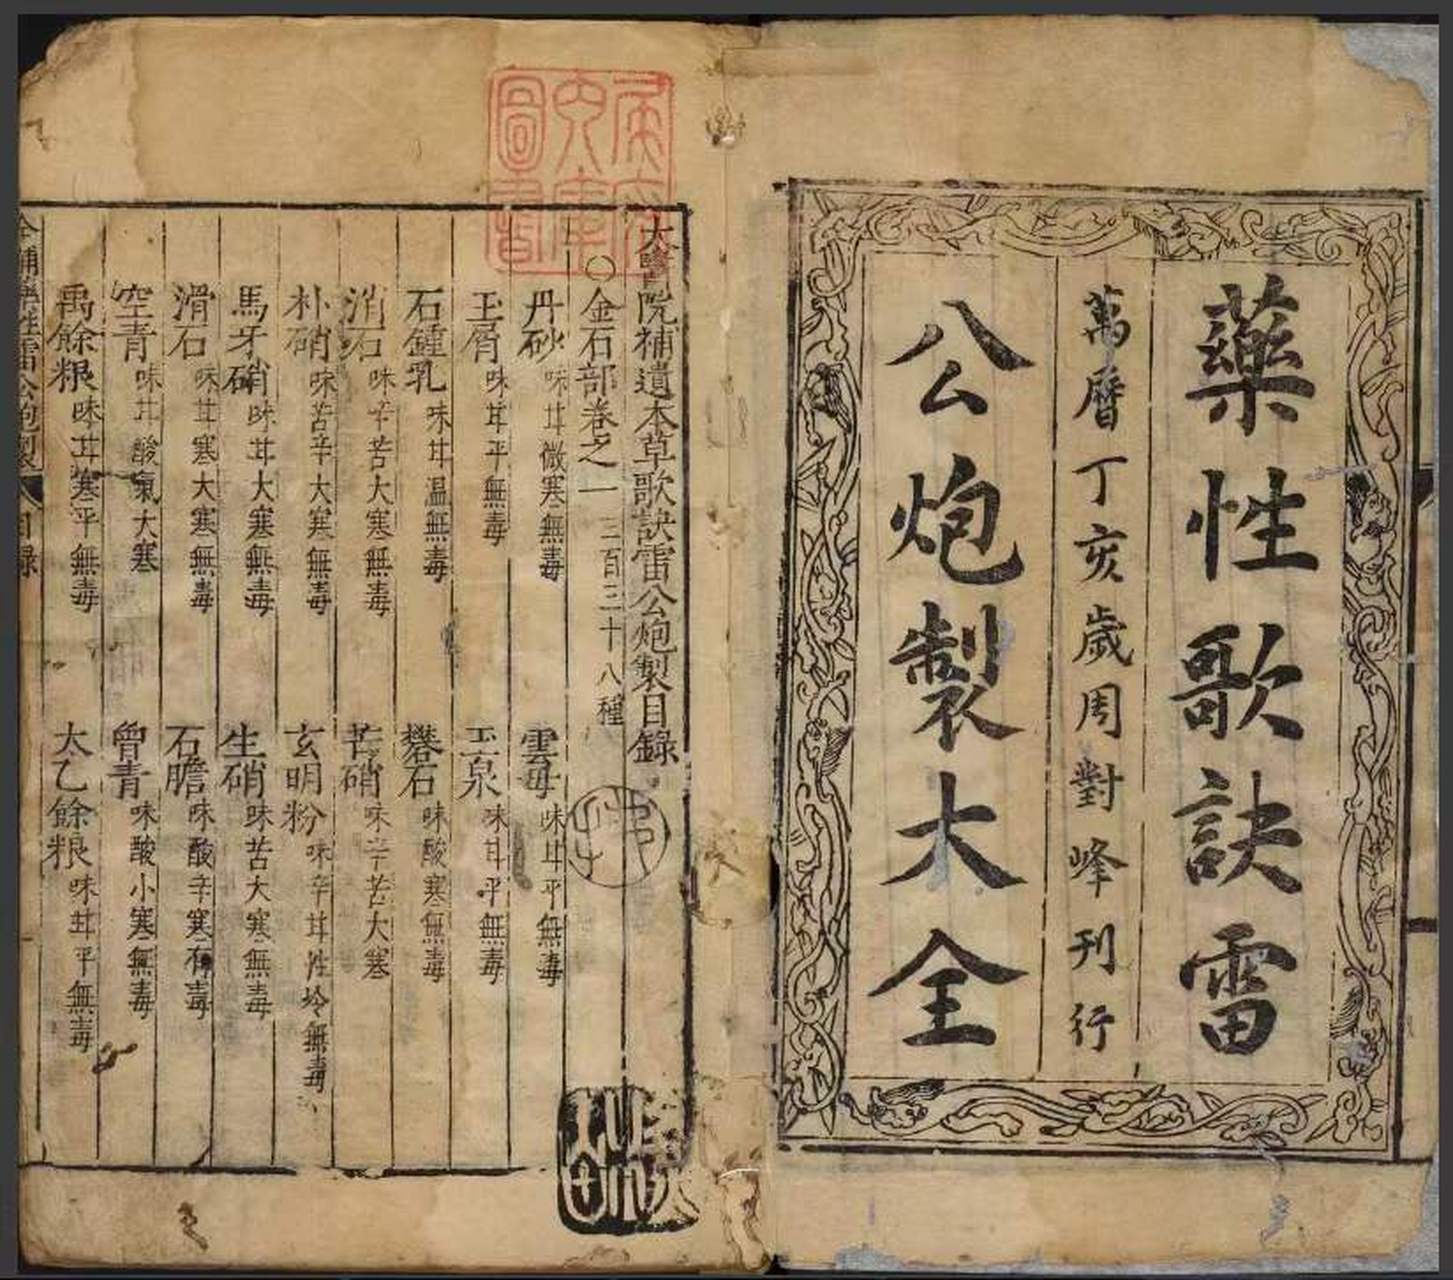 藥性歌訣雷
萬曆丁亥歲周對峰刊行
公炮製大全
大醫院補遺本草歌訣雷公炮製目錄
○金石部卷之一 三百三十八種
丹砂 味甘微寒無毒 雲母 味甘平無毒
玉屑 味甘平無毒 玉泉 味甘平無毒
石鍾乳 味甘温無毒 礬石 味酸寒無毒
消石 味辛苦大寒無毒 芒硝 味辛苦大寒
朴硝 味苦辛大寒無毒 玄明粉 味辛甘性冷無毒
馬牙硝 味甘大寒無毒 生硝 味苦大寒無毒
滑石 味甘寒大寒無毒 石膽 味酸辛寒有毒
空青 味甘酸氣大寒 曾青 味酸小寒無毒
禹餘粮 味甘寒平無毒 太乙餘粮 味甘平無毒
雷公炮製 目錄